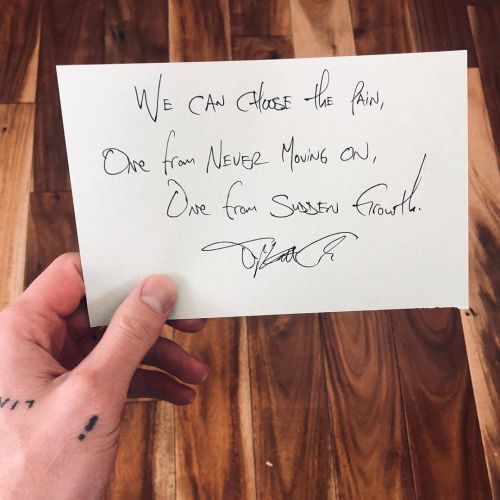 WE CAN CHOOSE the PAIN,
One from NEVER MOVING ON,
One from SUDDEN Growth.